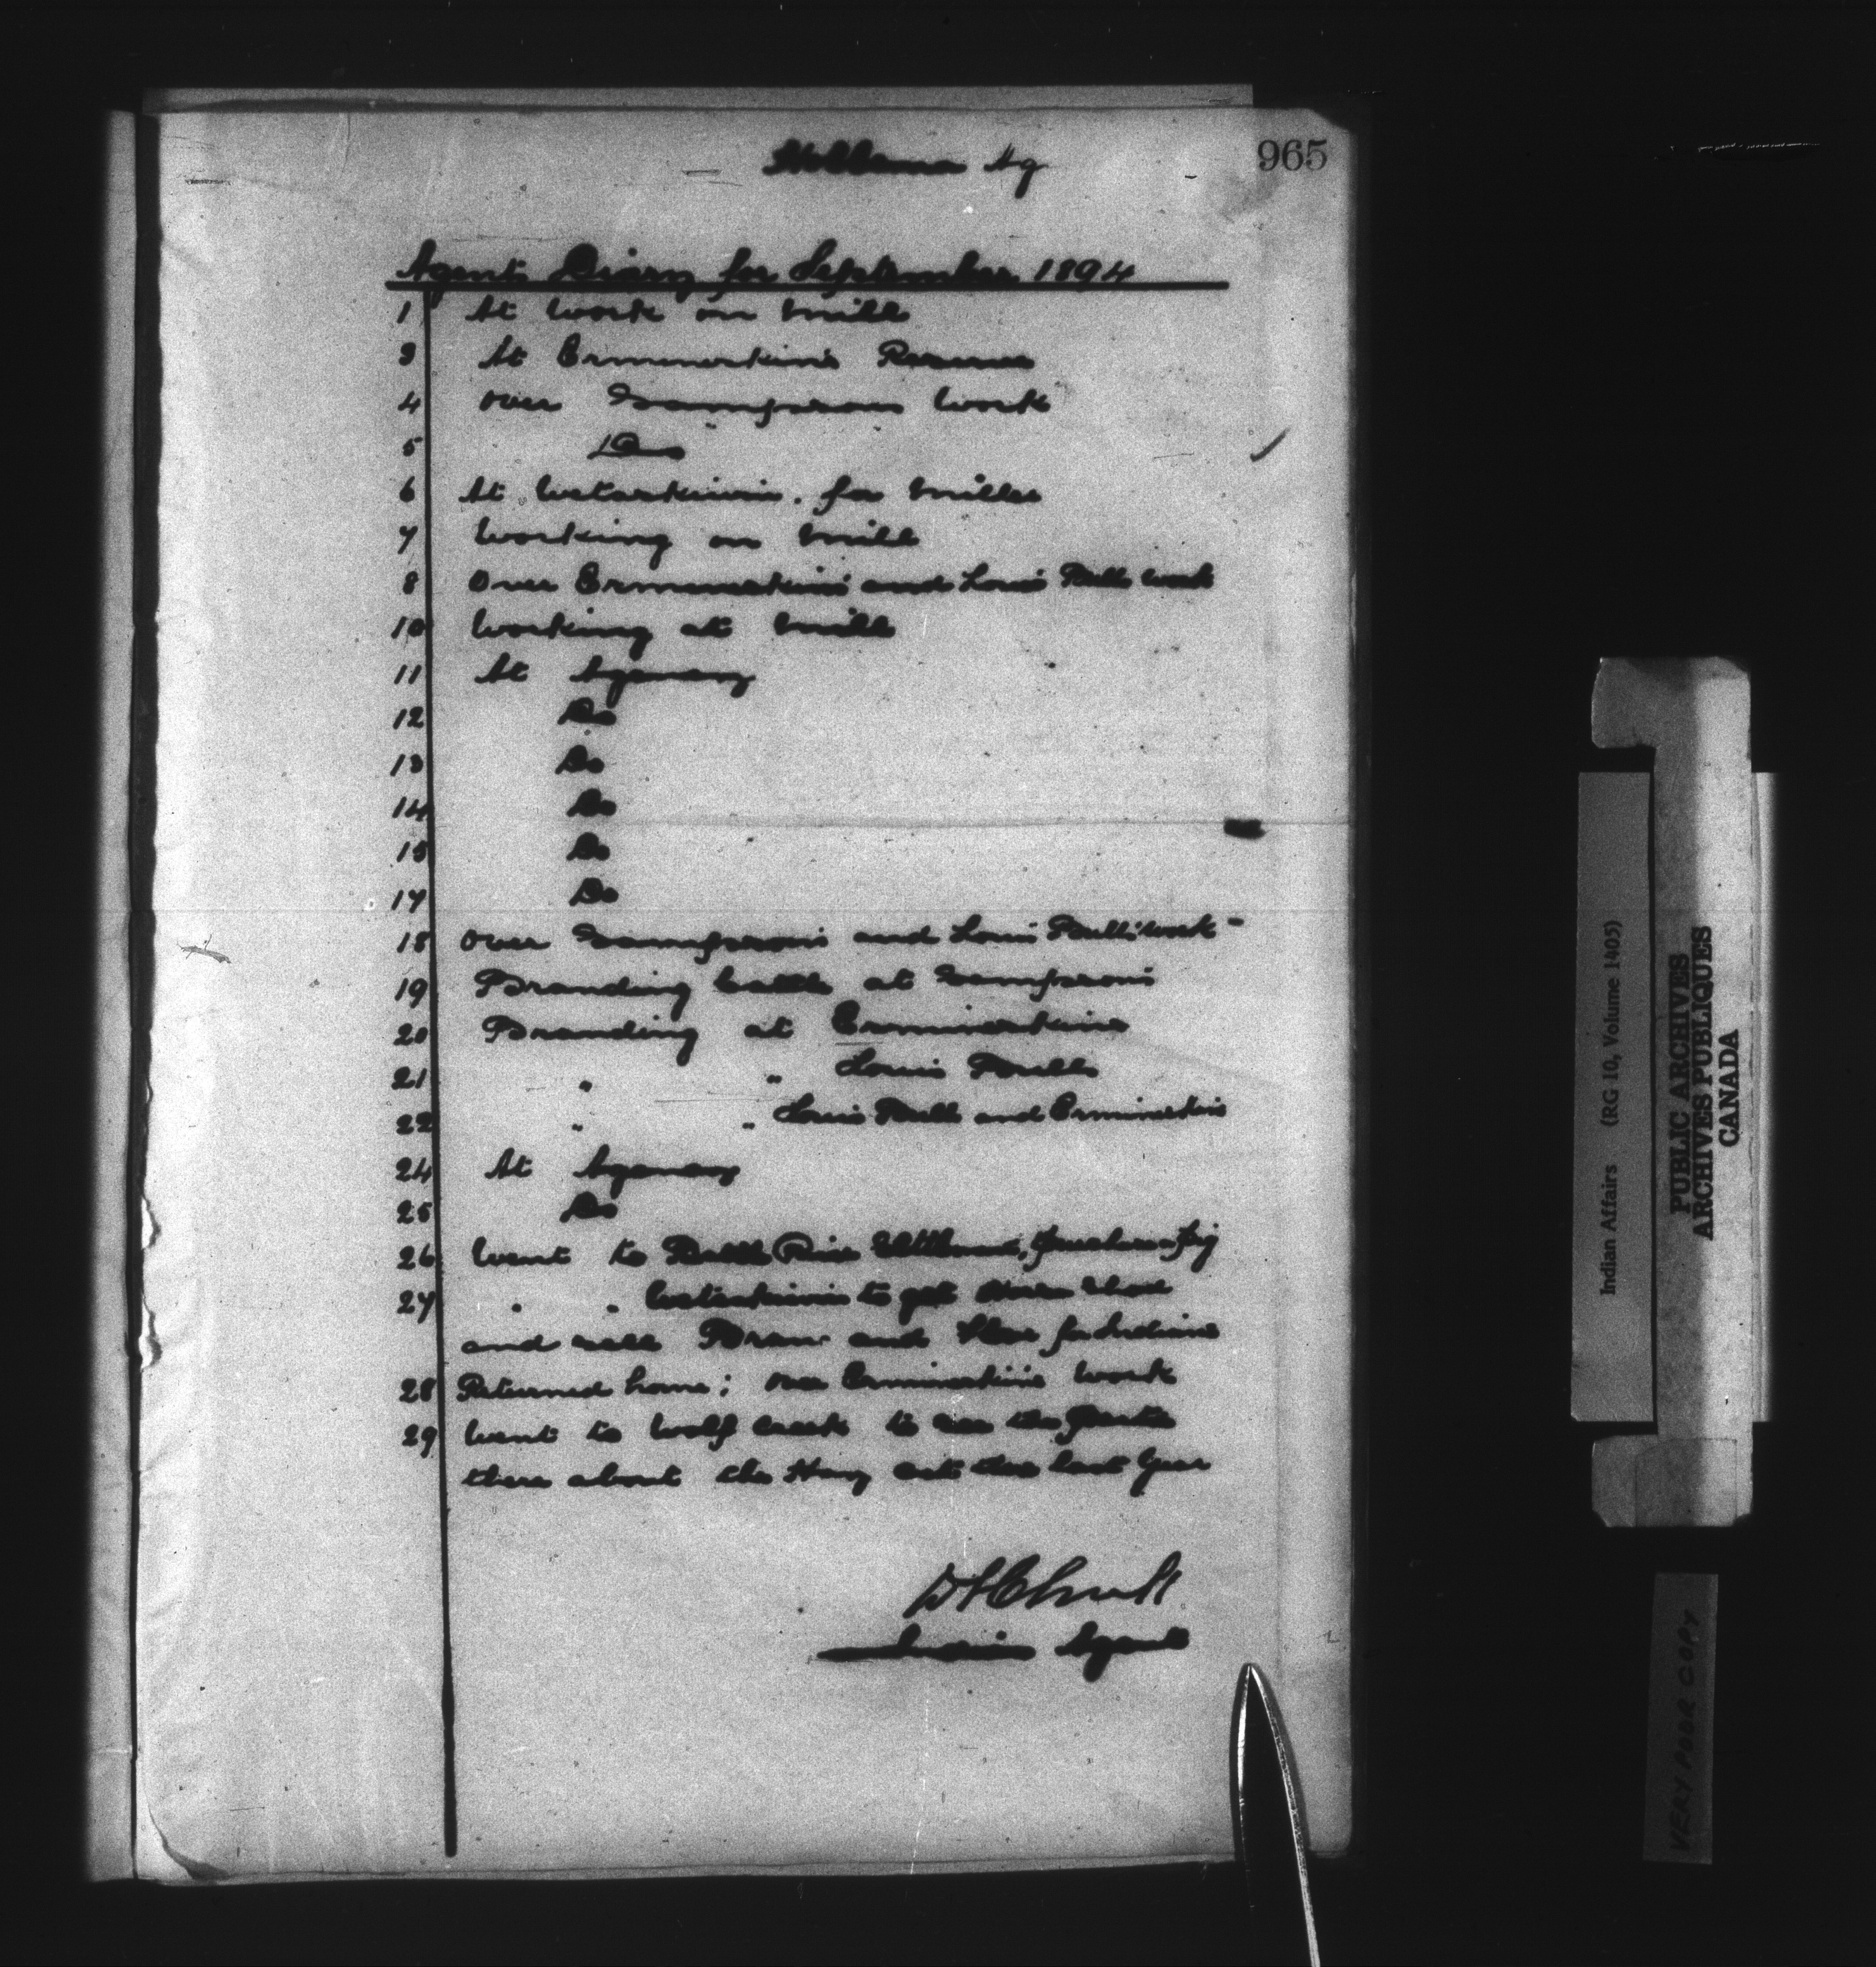 965
Hobbema Ag
Agents Diary for September 1894
1 At work on mill
3 At Ermineskins Reserve
4 over Sampsons work
5 Do
6 At Wetaskiwin. for Miller
7 Working on mill
8 Over Ermineskins and Louis Bulls work
10 Working at Mill
11 At Agency
12 Do
13 Do
14 Do
15 Do
17 Do
18 over Sampsons and Louis Bulls work -
19 Branding Cattle at Sampsons
20 Branding at Ermineskins
21 " " Louis Bulls
22 " " Louis Bull and Ermineskins
24 At Agency
25 Do
26 Went to Battle River Settlement,
27 " " Wetaskiwin to get
and sell Bran and for Indians
28 Returned home; over Ermineskins work
29 Went to Wolf Creek to see the
there about the Hay cut there last year
Indian Agent
Indian Affairs (RG 10, Volume 1405)
PUBLIC ARCHIVES
ARCHIVES PUBLIQUES
CANADA
VERY POOR COPY